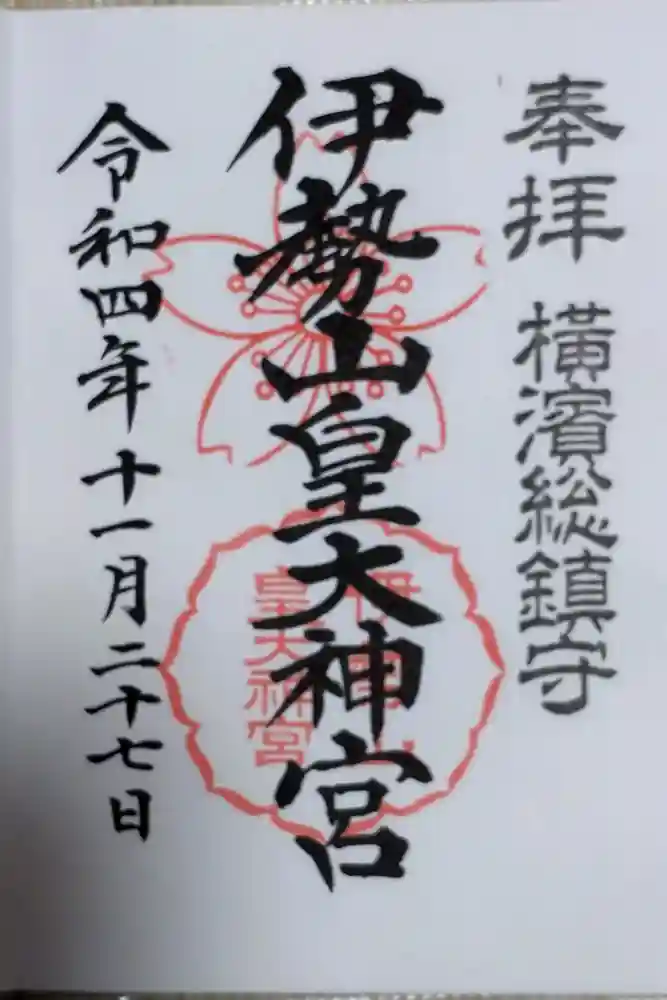 奉拝 横濱総鎮守
伊勢山皇大神宮
皇大神宮
令和四年十一月二十七日